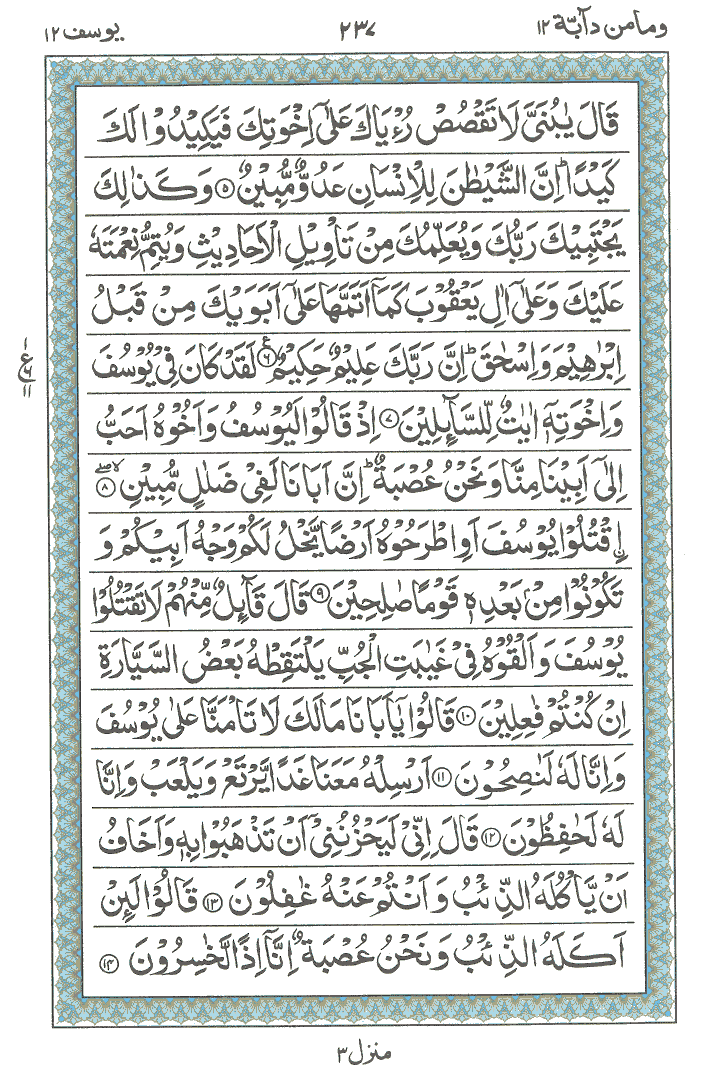 وما من دآبة ١٢
٢٣٧
يوسف ١٢
قَالَ يٰبُنَىَّ لَا تَقْصُصْ رُءْيَاكَ عَلٰٓى اِخْوَتِكَ فَيَكِيْدُوْا لَكَ
كَيْدًاؕ اِنَّ الشَّيْطٰنَ لِلْاِنْسَانِ عَدُوٌّ مُّبِيْنٌ ۵ وَكَذٰلِكَ
يَجْتَبِيْكَ رَبُّكَ وَيُعَلِّمُكَ مِنْ تَاْوِيْلِ الْاَحَادِيْثِ وَيُتِمُّ نِعْمَتَهٗ
عَلَيْكَ وَعَلٰٓى اٰلِ يَعْقُوْبَ كَمَاۤ اَتَمَّهَا عَلٰٓى اَبَوَيْكَ مِنْ قَبْلُ
اِبْرٰهِيْمَ وَاِسْحٰقَؕ اِنَّ رَبَّكَ عَلِيْمٌ حَكِيْمٌ ۶ع لَقَدْ كَانَ فِيْ يُوْسُفَ
ع ١ ۶ ١١
وَاِخْوَتِهٖۤ اٰيٰتٌ لِّلسَّآئِلِيْنَ ۷ اِذْ قَالُوْا لَيُوْسُفُ وَاَخُوْهُ اَحَبُّ
اِلٰٓى اَبِيْنَا مِنَّا وَنَحْنُ عُصْبَةٌؕ اِنَّ اَبَانَا لَفِيْ ضَلٰلٍ مُّبِيْنِ ۸
اِۨقْتُلُوْا يُوْسُفَ اَوِ اطْرَحُوْهُ اَرْضًا يَّخْلُ لَكُمْ وَجْهُ اَبِيْكُمْ وَ
تَكُوْنُوْا مِنْۢ بَعْدِهٖ قَوْمًا صٰلِحِيْنَ ۹ قَالَ قَآئِلٌ مِّنْهُمْ لَا تَقْتُلُوْا
يُوْسُفَ وَاَلْقُوْهُ فِيْ غَيٰبَتِ الْجُبِّ يَلْتَقِطْهُ بَعْضُ السَّيَّارَةِ
اِنْ كُنْتُمْ فٰعِلِيْنَ ١٠ قَالُوْا يٰۤاَبَانَا مَا لَكَ لَا تَاْمَنَّا عَلٰى يُوْسُفَ
وَاِنَّا لَهٗ لَنٰصِحُوْنَ ١١ اَرْسِلْهُ مَعَنَا غَدًا يَّرْتَعْ وَيَلْعَبْ وَاِنَّا
لَهٗ لَحٰفِظُوْنَ ١٢ قَالَ اِنِّيْ لَيَحْزُنُنِيْۤ اَنْ تَذْهَبُوْا بِهٖ وَاَخَافُ
اَنْ يَّاْكُلَهُ الذِّئْبُ وَاَنْتُمْ عَنْهُ غٰفِلُوْنَ ١٣ قَالُوْا لَئِنْ
اَكَلَهُ الذِّئْبُ وَنَحْنُ عُصْبَةٌ اِنَّاۤ اِذًا لَّخٰسِرُوْنَ ١۴
منزل ٣